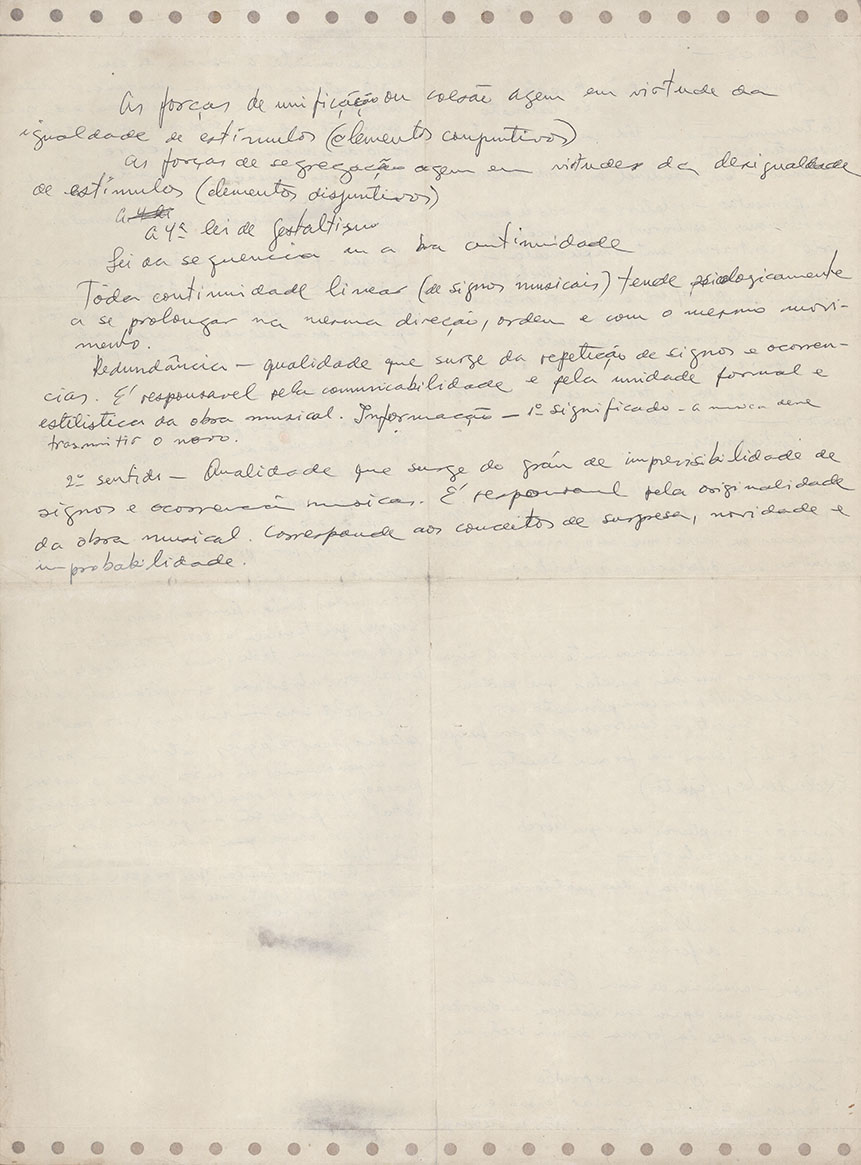 As forças de unificação ou coesão agem em virtude da
igualdade de estímulos (elementos conjuntivos)
As forças de segregação agem em virtudes da desigualdade
de estímulos (elementos disjuntivos)
a 4ª lei de gestaltismo
Lei da sequencia ou a boa continuidade
Tôda continuidade linear (de signos musicais) tende psicologicamente
a se prolongar na mesma direção, ordem e com o mesmo movi-
mento.
Redundância — qualidade que surge da repetição de signos e ocorren-
cias. É responsavel pela comunicabilidade e pela unidade formal e
estilistica da obra musical. Informação — 1º significado - a musica deve
trasmitir o novo.
2º sentido — Qualidade que surge do gráu de imprevisibilidade de
signos e ocorrencia musicas. É responsavel pela originalidade
da obra musical. Corresponde aos conceitos de surpresa, novidade e
improbabilidade.